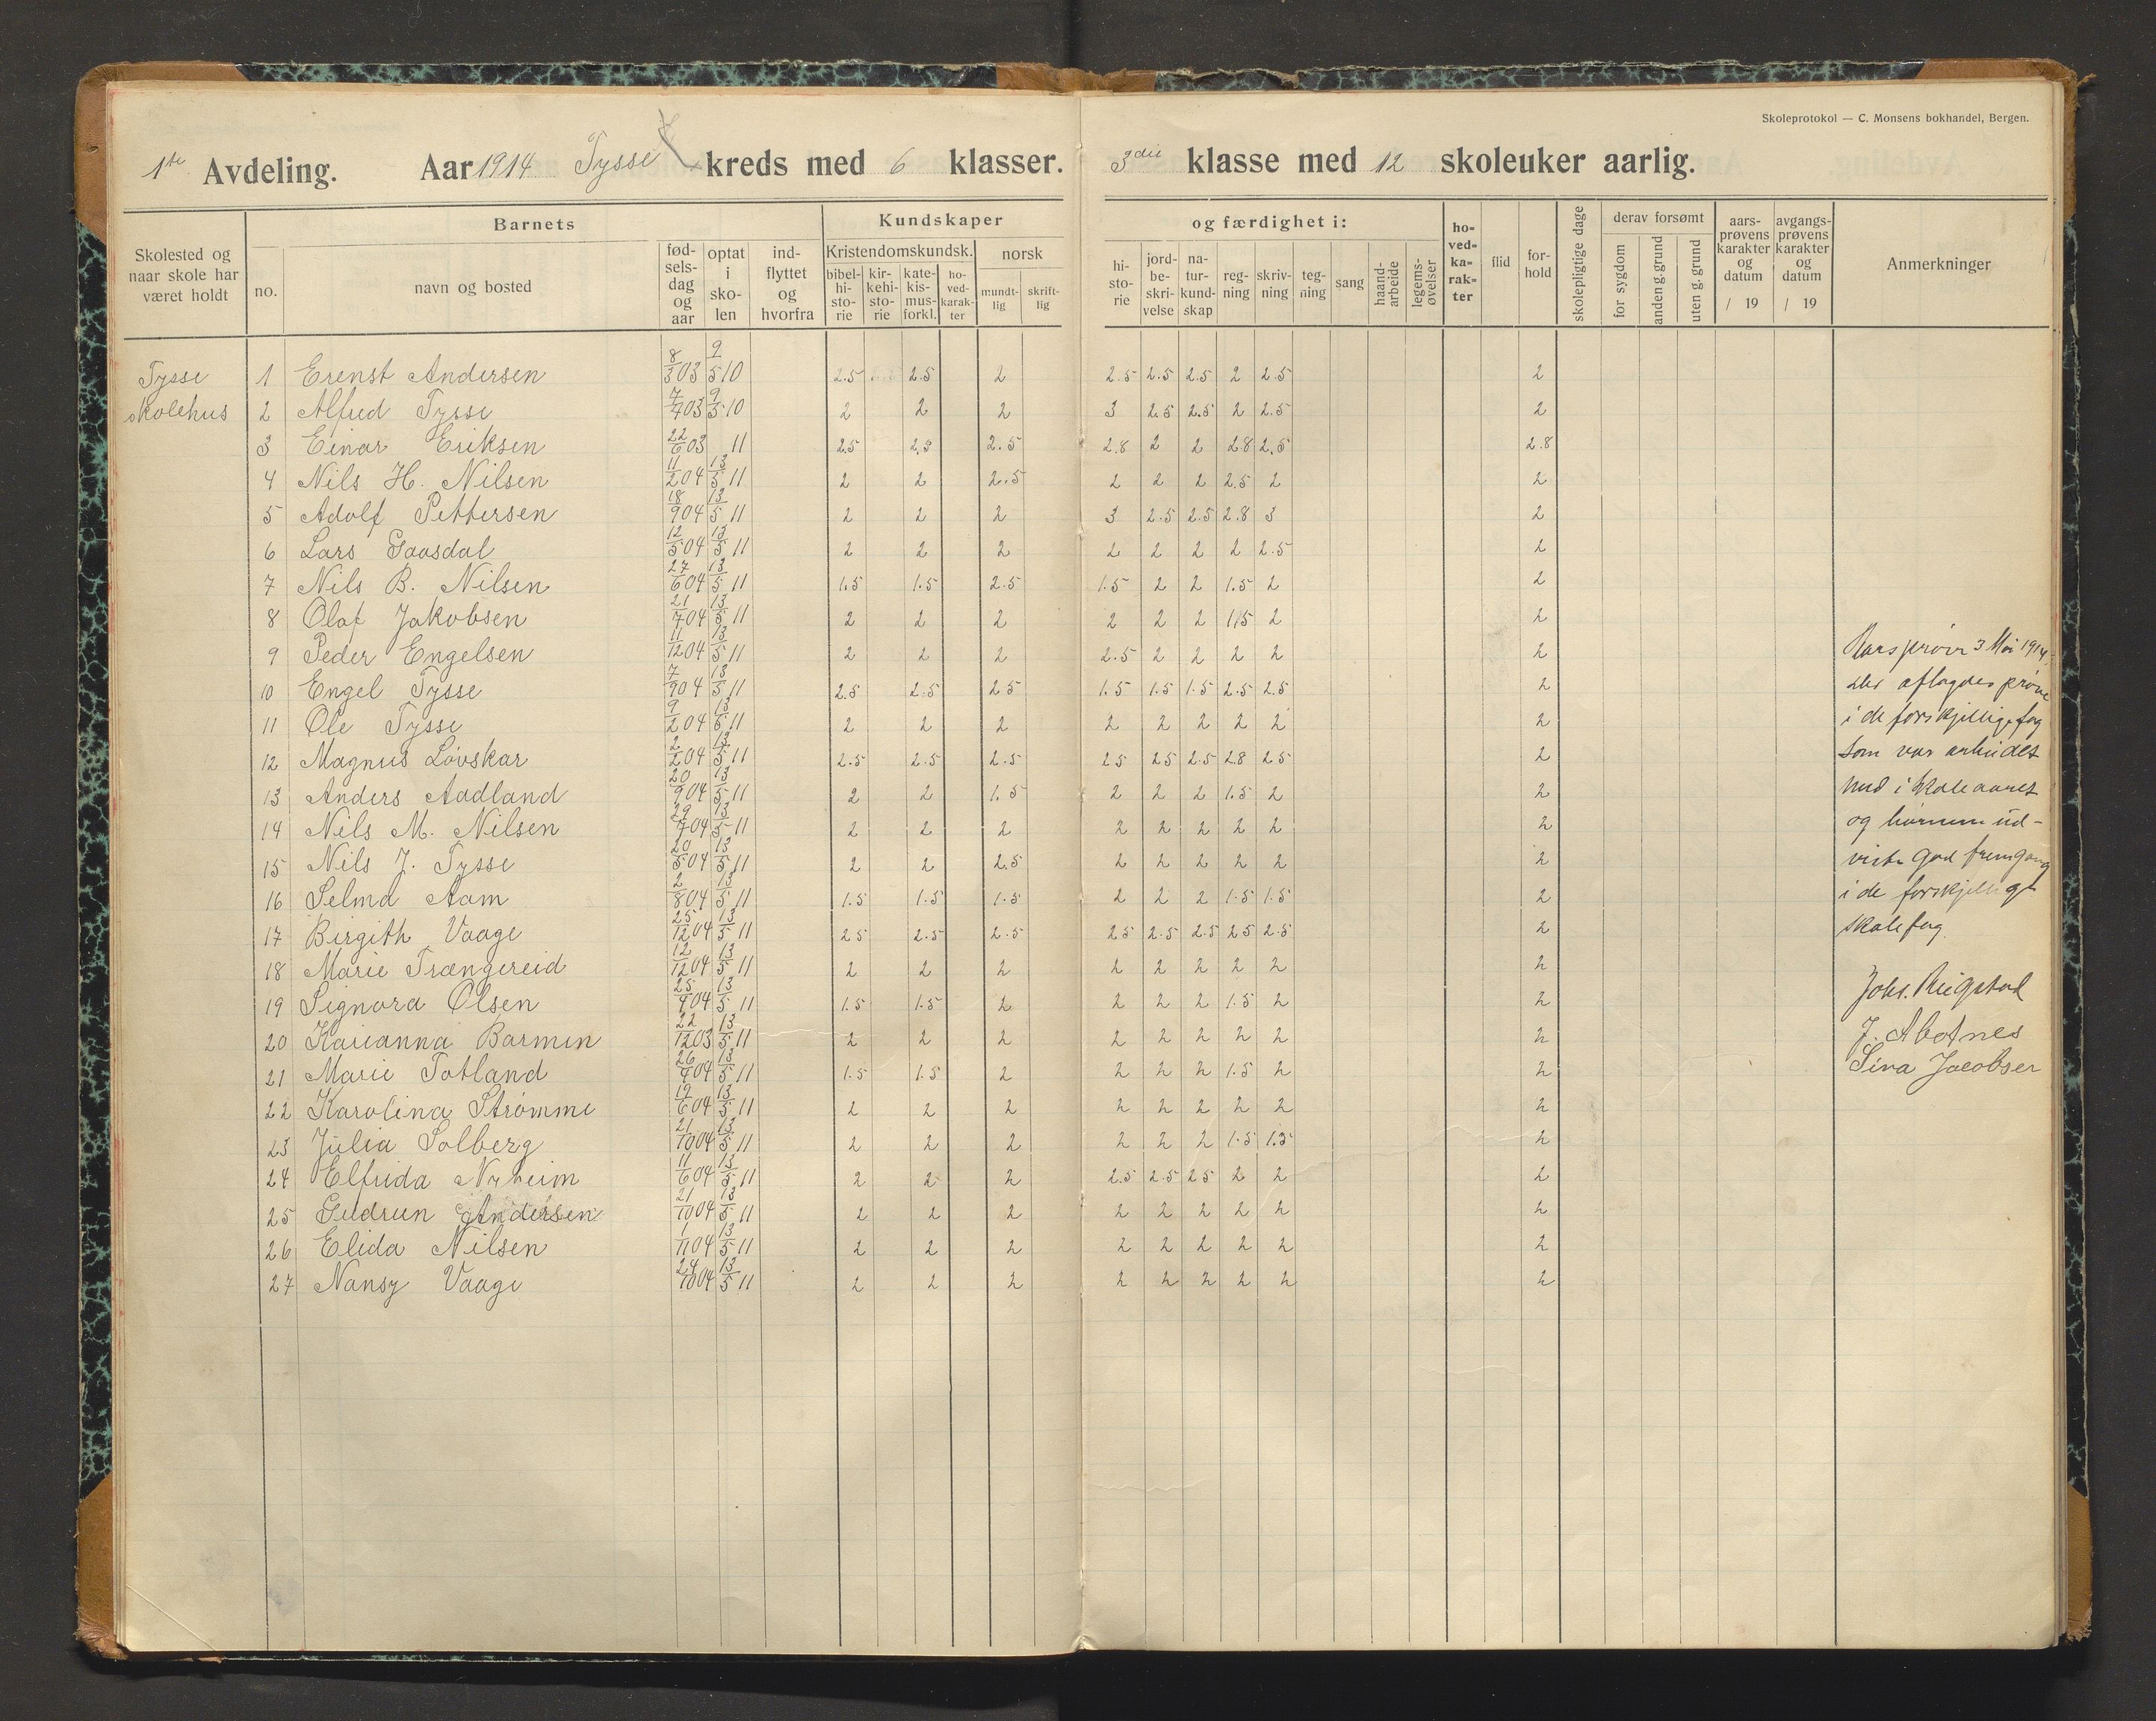 Skoleprotokol — C. Monsens bokhandel, Bergen.
1ste Avdeling. Aar 1914 Tysse kreds med 6 klasser. 3die klasse med 12 skoleuker aarlig.
Skolested og naar skole har været holdt
no.
Barnets
navn og bosted
fød-sels-dag og aar
optat i sko-len
ind-flyttet og hvorfra
Kundskaper og færdighet i:
Kristendomskundsk.
bibel-hi-sto-rie
kir-kehi-sto-rie
kate-kis-mus-forkl.
ho-ved-karak-ter
norsk
mundt-lig
skrift-lig
hi-sto-rie
jord-be-skri-velse
na-tur-kund-skap
reg-ning
skriv-ning
teg-ning
sang
haand-arbeide
legems-øvelser
ho-ved-ka-rak-ter
flid
for-hold
skolepligtige dage
derav forsømt
for sygdom
anden g. grund
uten g. grund
aars-prøvens karakter og datum / 19
avgangs-prøvens karakter og datum / 19
Anmerkninger
Tysse skolehus
1 Erenst Andersen 8/3 03 9/5 10 2.5 2.5 2 2.5 2.5 2.5 2 2.5 2
2 Alfred Tysse 7/7 03 9/5 10 2 2 2 3 2.5 2.5 2 2.5 2
3 Einar Eriksen 22/6 03 11 2.5 2.3 2.5 2.8 2 2 2.8 2.5 2.8
4 Nils H. Nilsen 11/2 04 13/5 11 2 2 2.5 2 2 2 2.5 2 2
5 Adolf Pettersen 18/9 04 13/5 11 2 2 2 3 2.5 2.5 2.8 3 2
6 Lars Gaasdal 12/5 04 13/5 11 2 2 2 2 2 2 2 2.5 2
7 Nils B. Nilsen 27/6 04 13/5 11 1.5 1.5 2.5 1.5 2 2 1.5 2 2
8 Olaf Jakobsen 21/7 04 13/5 11 2 2 2 2 2 2 1.5 2 2
9 Peder Engelsen 11/12 04 13/5 11 2 2 2 2.5 2 2 2 2 2
10 Engel Tysse 7/9 04 13/5 11 2.5 2.5 2.5 1.5 1.5 1.5 2.5 2.5 2
11 Ole Tysse 9/2 04 13/5 11 2 2 2 2 2 2 2 2 2
12 Magnus Løvskar 2/2 04 13/5 11 2.5 2.5 2.5 25 25 2.5 28 25 2
13 Anders Aadland 20/9 04 13/5 11 2 2 1.5 2 2 2 1.5 2 2
14 Nils M. Nilsen 29/7 04 13/5 11 2 2 2 2 2 2 2 2 2
15 Nils J. Tysse 20/5 04 13/5 11 2 2 2.5 2 2 2 2 2 2
16 Selma Aam 2/8 04 13/5 11 1.5 1.5 1.5 2 2 2 1.5 1.5 2
17 Birgith Vaage 25/12 04 13/5 11 25 2.5 2.5 25 2.5 2.5 25 2.5 2
18 Marie Trængereid 12/12 04 13/5 11 2 2 2 2 2 2 2 2 2
19 Signora Olsen 25/9 04 13/5 11 1.5 1.5 2 2 2 2 1.5 2 2
20 Karianna Barmen 22/12 03 13/5 11 2 2 2 2 2 2 2 2 2
21 Marie Totland 26/9 04 13/5 11 1.5 1.5 2 2 2 2 1.5 2 2
22 Karolina Strømme 19/6 04 13/5 11 2 2 2 2 2 2 2 2 2
23 Julia Solberg 21/10 04 13/5 11 2 2 2 2 2 2 1.5 1.5 2
24 Elfrida Nyheim 11/6 04 13/5 11 2 2 2 2.5 2.5 25 2 2 2
25 Gudrun Andersen 21/10 04 13/5 11 2 2 2 2 2 2 2 2 2
26 Elida Nilsen 1/11 04 13/5 11 2 2 2 2 2 2 2 2 2
27 Nansy Vaage 24/10 04 13/5 11 2 2 2 2 2 2 2 2 2
Aarsprøve 3 Mai 1914.
der aflagdes prøve
i de forskjellige fag
som var arbeidet
med i skoleaaret
og børnene ud-
viste god fremgang
i de forskjellige
skolefag.
Johs. Reigstad
J. Abotnes
Sina Jacobsen